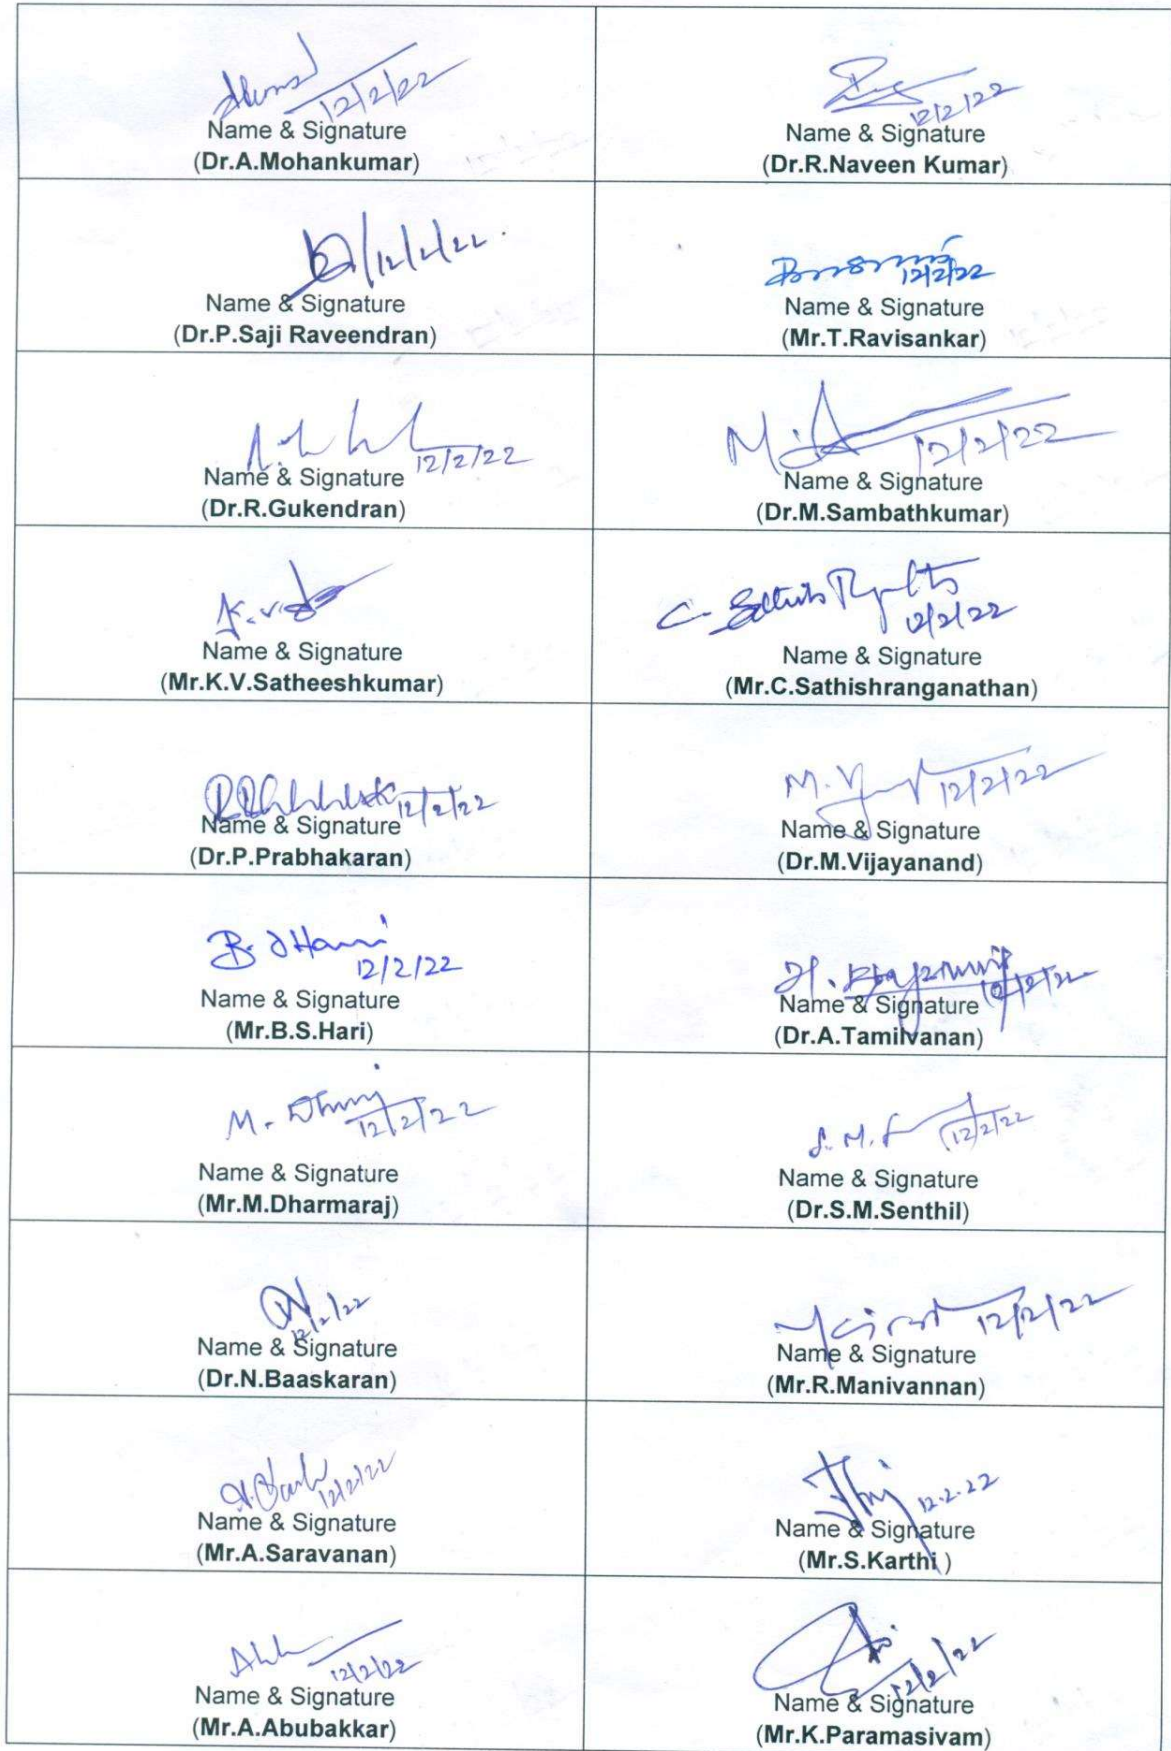 12/2/22
Name & Signature
(Dr.A.Mohankumar)
12/2/22
Name & Signature
(Dr.R.Naveen Kumar)
12/2/22.
Name & Signature
(Dr.P.Saji Raveendran)
12/2/22
Name & Signature
(Mr.T.Ravisankar)
12/2/22
Name & Signature
(Dr.R.Gukendran)
12/2/22
Name & Signature
(Dr.M.Sambathkumar)
Name & Signature
(Mr.K.V.Satheeshkumar)
12/2/22
Name & Signature
(Mr.C.Sathishranganathan)
12/2/22
Name & Signature
(Dr.P.Prabhakaran)
12/2/22
Name & Signature
(Dr.M.Vijayanand)
12/2/22
Name & Signature
(Mr.B.S.Hari)
12/2/22
Name & Signature
(Dr.A.Tamilvanan)
12/2/22
Name & Signature
(Mr.M.Dharmaraj)
12/2/22
Name & Signature
(Dr.S.M.Senthil)
12/2/22
Name & Signature
(Dr.N.Baaskaran)
12/2/22
Name & Signature
(Mr.R.Manivannan)
12/2/22
Name & Signature
(Mr.A.Saravanan)
12.2.22
Name & Signature
(Mr.S.Karthi )
12/2/22
Name & Signature
(Mr.A.Abubakkar)
12/2/22
Name & Signature
(Mr.K.Paramasivam)